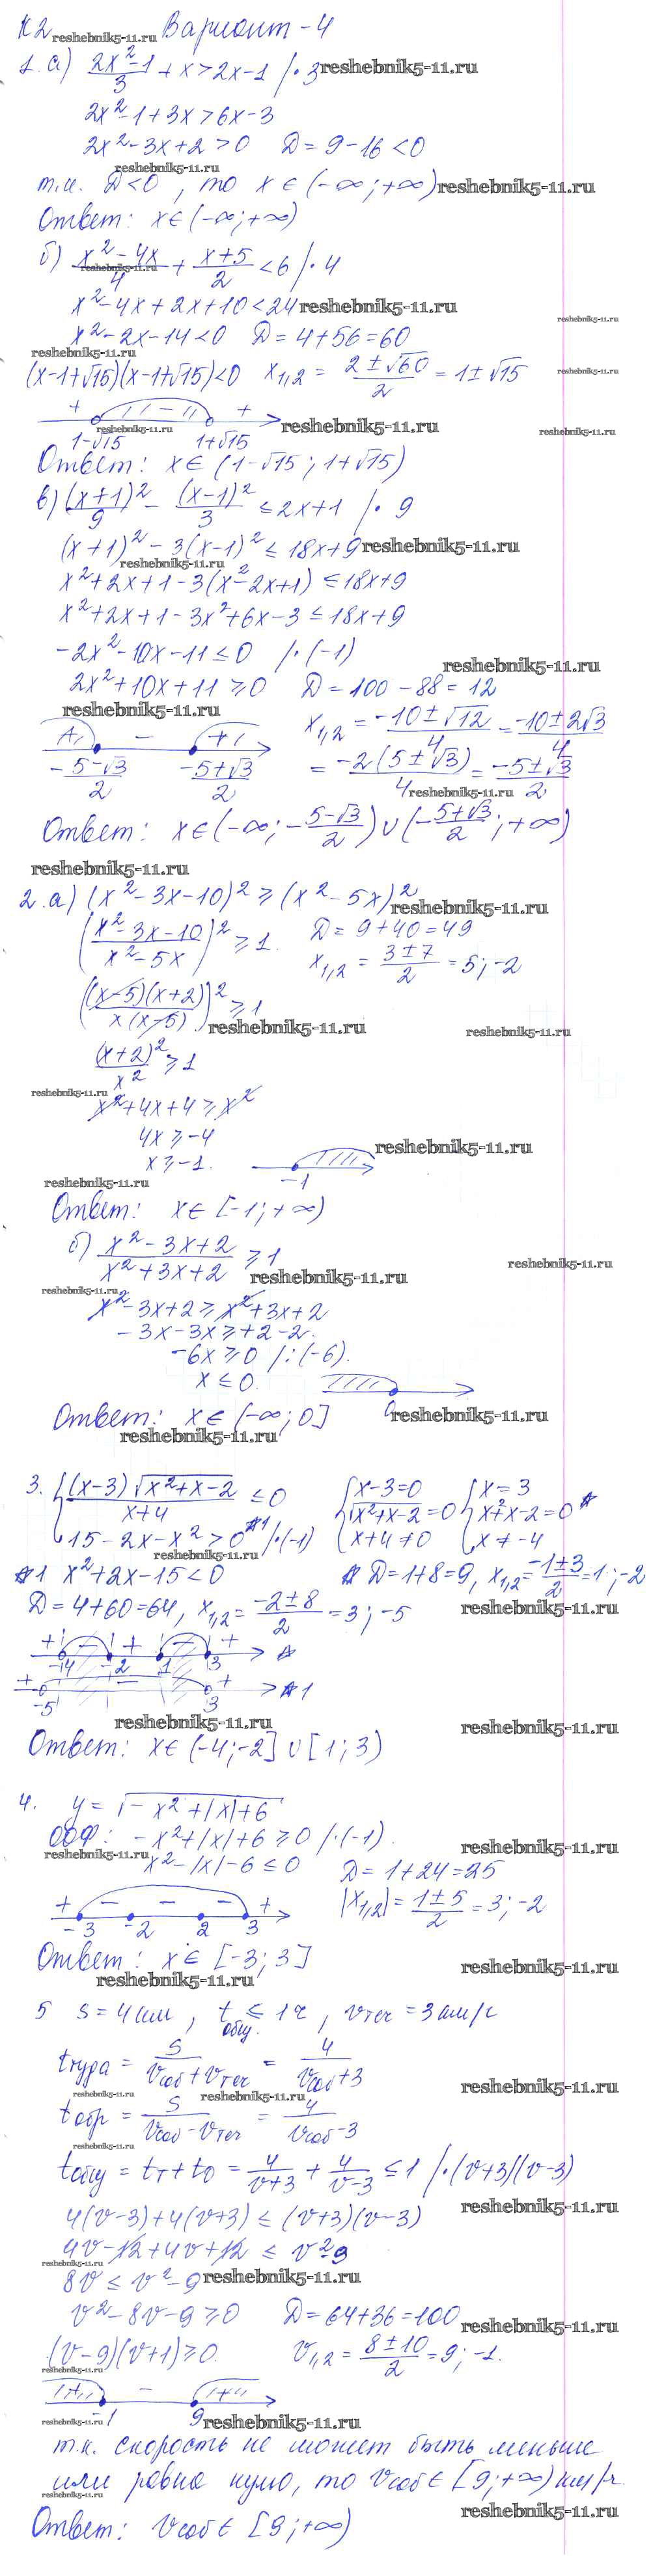 К2 reshebnik5-11.ru Вариант-4
1. а) (2x²-1)/3 + x > 2x-1 /·3 reshebnik5-11.ru
2x²-1+3x>6x-3
2x²-3x+2>0 D=9-16<0
reshebnik5-11.ru
т.к. D<0, то x∈(-∞;+∞) reshebnik5-11.ru
Ответ: x∈(-∞;+∞)
б) (x²-4x)/4 + (x+5)/2 <6 /·4
reshebnik5-11.ru
x²-4x+2x+10<24 reshebnik5-11.ru
reshebnik5-11.ru
x²-2x-14<0 D=4+56=60
reshebnik5-11.ru
(x-1+√15)(x-1+√15)<0 x₁,₂ = (2±√60)/2 = 1±√15 reshebnik5-11.ru
+ - +
reshebnik5-11.ru reshebnik5-11.ru reshebnik5-11.ru
1-√15 1+√15
Ответ: x∈(1-√15; 1+√15)
в) (x+1)²/9 - (x-1)²/3 ≤2x+1 /·9
(x+1)²-3(x-1)² ≤ 18x+9 reshebnik5-11.ru
reshebnik5-11.ru
x²+2x+1-3(x²-2x+1) ≤18x+9
x²+2x+1-3x²+6x-3≤18x+9
-2x²-10x-11≤0 /·(-1)
reshebnik5-11.ru
2x²+10x+11≥0 D=100-88=12
reshebnik5-11.ru
x₁,₂ = (-10±√12)/4 = (-10±2√3)/4
+ - +
(-5-√3)/2 (-5+√3)/2
= -2(5±√3)/4 = (-5±√3)/2
reshebnik5-11.ru
Ответ: x∈(-∞; -(5-√3)/2)∪(-(5+√3)/2; +∞)
reshebnik5-11.ru
2. а) (x²-3x-10)² ≥ (x²-5x)²
reshebnik5-11.ru
((x²-3x-10)/(x²-5x))² ≥1. D=9+40=49
x₁,₂ = (3±7)/2 = 5; -2
((x-5)(x+2)/(x(x-5)))² ≥1
reshebnik5-11.ru reshebnik5-11.ru
(x+2)²/x² ≥1
reshebnik5-11.ru
x²+4x+4≥x²
4x≥-4
reshebnik5-11.ru
x≥-1.
-1
reshebnik5-11.ru
Ответ: x∈[-1;+∞)
б) (x²-3x+2)/(x²+3x+2) ≥1
reshebnik5-11.ru reshebnik5-11.ru
reshebnik5-11.ru
x²-3x+2≥x²+3x+2
-3x-3x≥+2-2.
-6x≥0 /:(-6).
x≤0.
0
Ответ: x∈(-∞;0] reshebnik5-11.ru
reshebnik5-11.ru
3. { (x-3)√(x²+x-2)/(x+4) ≤0 { x-3=0 { x=3
√(x²+x-2)=0 x²+x-2=0 *
15-2x-x²>0 *1 /·(-1) x+4≠0 x≠-4
reshebnik5-11.ru
*1 x²+2x-15<0 * D=1+8=9, x₁,₂=(-1±3)/2=1;-2
D=4+60=64, x₁,₂=(-2±8)/2=3;-5 reshebnik5-11.ru
+ - + - + *
-4 -2 1 3
+ - + *1
-5 3
reshebnik5-11.ru reshebnik5-11.ru
Ответ: x∈(-4;-2]∪[1;3)
4. y=√(-x²+|x|+6)
ООФ: -x²+|x|+6≥0 /·(-1). reshebnik5-11.ru
reshebnik5-11.ru
x²-|x|-6≤0 D=1+24=25
+ - - - + |x₁,₂|=(1±5)/2=3;-2
-3 -2 2 3
Ответ: x∈[-3;3]
reshebnik5-11.ru reshebnik5-11.ru
5 S=4км, tобщ. ≤ 1ч, vтеч =3км/ч
tтуда = S/(vсоб+vтеч) = 4/(vсоб+3)
reshebnik5-11.ru
reshebnik5-11.ru reshebnik5-11.ru
tобр = S/(vсоб-vтеч) = 4/(vсоб-3)
reshebnik5-11.ru
tобщ = tт+tо = 4/(v+3) + 4/(v-3) ≤1 /·(v+3)(v-3)
reshebnik5-11.ru
4(v-3)+4(v+3) ≤ (v+3)(v-3)
4v-12+4v+12 ≤ v²-9
reshebnik5-11.ru
8v≤v²-9 reshebnik5-11.ru
v²-8v-9≥0 D=64+36=100
reshebnik5-11.ru
(v-9)(v+1)≥0. v₁,₂=(8±10)/2=9;-1.
reshebnik5-11.ru
+ - +
-1 9
reshebnik5-11.ru reshebnik5-11.ru
т.к. скорость не может быть меньше
или равна нулю, то vсоб∈[9;+∞)км/ч.
reshebnik5-11.ru reshebnik5-11.ru
Ответ: vсоб∈[9;+∞)